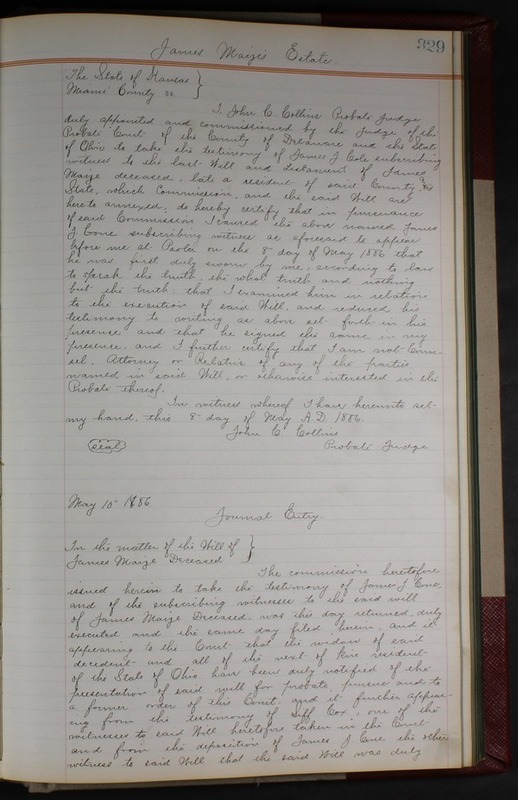 329
James Maize's Estate.
The State of Kansas }
Miami County ss. }
I, John C. Collins Probate Judge
duly appointed and commissioned by the Judge of the
Probate Court of the County of Delaware and the State
of Ohio to take the testimony of James J. Cole subscribing
witness to the last Will and testament of James
Maize deceased, late a resident of said County &
State, which Commission, and the said Will are
hereto annexed, do hereby certify that in pursuance
of said Commission I caused the above named James
J Cone subscribing witness as aforesaid to appear
before me at Paola on the 8" day of May 1886 that
he was first duly sworn by me, according to law
to speak the truth, the whole truth and nothing
but the truth: that I examined him in relation
to the execution of said Will, and reduced his
testimony to writing as above set forth in his
presence and that he signed the same in my
presence, and I further certify that I am not Coun-
sel, Attorney or Relative of any of the parties
named in said Will, or otherwise interested in the
Probate thereof.
In witness whereof I have hereunto set
my hand, this 8" day of May A.D. 1886.
John C. Collins
(Seal) Probate Judge
May 10" 1886
Journal Entry
In the matter of the Will of }
James Maize Deceased }
The commission heretofore
issued herein to take the testimony of James J. Cone
and of the subscribing witnesses to the said will
of James Maize Deceased, was this day returned, duly
executed and the same day filed herein, and it
appearing to the Court that the widow of said
decedent and all of the next of kin resident
of the State of Ohio have been duly notified of the
presentation of said will for probate, pursu and to
a former order of this Court, and it further appear-
ing from the testimony of Cox, one of the
witnesses to said Will heretofore taken in the Court
and from the deposition of James J Cone the other
witness to said Will that the said Will was duly